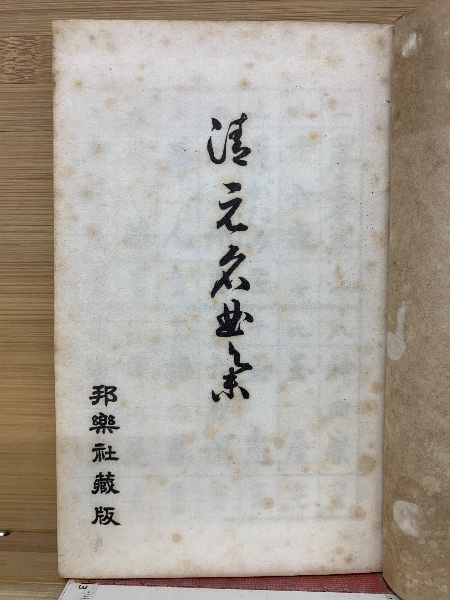 清元名曲集
邦樂社藏版